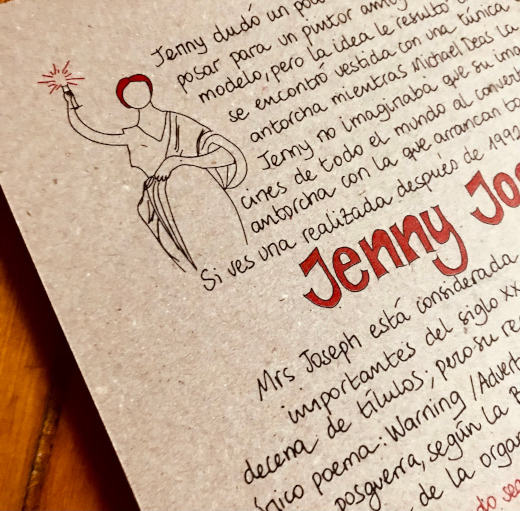 Jenny dudó un
posar para un pintor
modelo, pero la idea le resultó
se encontró vestida con una túnica
antorcha mientras Michael Deas la
Jenny no imaginaba que su
cines de todo el mundo al
antorcha con la que arrancan
Si ves una realizada después de 1992
Jenny
Mrs Joseph está considerada
importantes del siglo XX
decena de títulos; pero su
poema: Warning /
posguerra, según la
de la